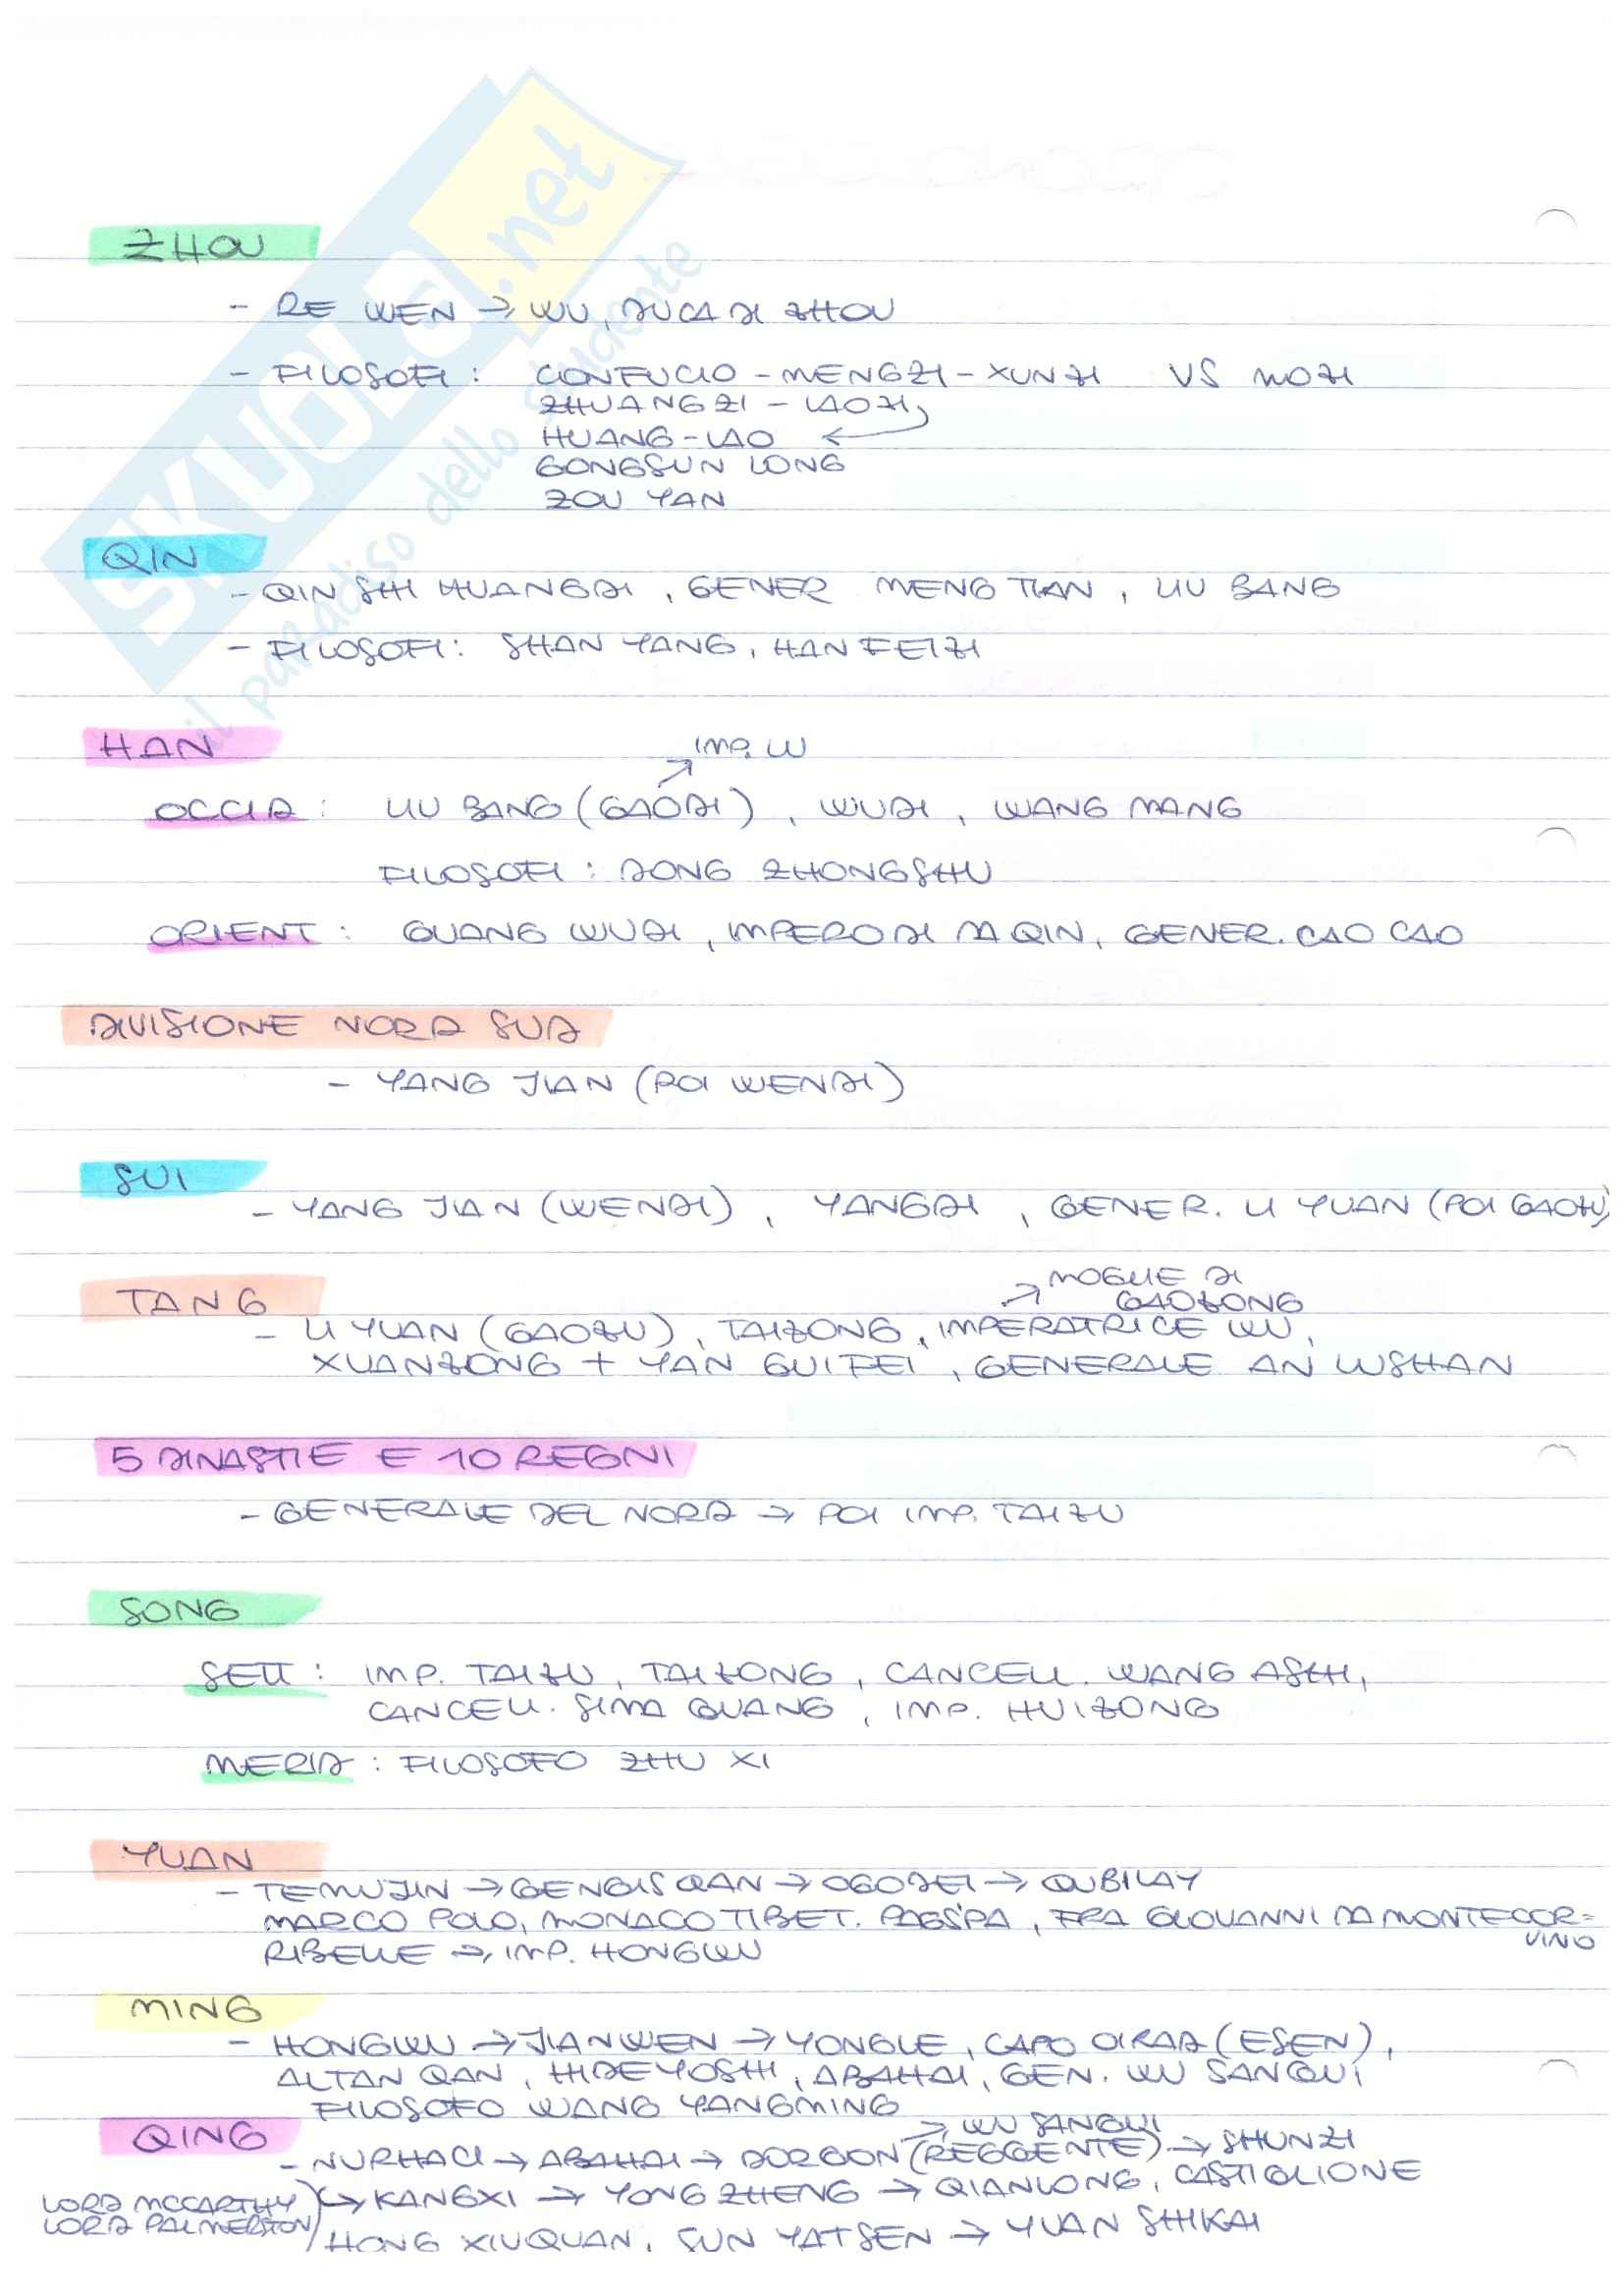 SKUOLA.net
il paradiso dello studente
ZHOU
- RE WEN → WU, DUCA DI ZHOU
- FILOSOFI: CONFUCIO - MENGZI - XUNZI VS MOZI
ZHUANGZI - LAOZI
HUANG-LAO ←
GONGSUN LONG
ZOU YAN
QIN
- QIN SHI HUANGDI, GENER MENG TIAN, LIU BANG
- FILOSOFI: SHAN YANG, HAN FEIZI
HAN
IMP. LU
OCCID: LIU BANG (GAODI), WUDI, WANG MANG
FILOSOFI: DONG ZHONGSHU
ORIENT: GUANG WUDI, IMPERO DI DA QIN, GENER. CAO CAO
DIVISIONE NORD SUD
- YANG JIAN (POI WENDI)
SUI
- YANG JIAN (WENDI), YANGDI, GENER. LI YUAN (POI GAOZU)
TANG
→ MOGLIE DI
GAOZONG
- LI YUAN (GAOZU), TAIZONG, IMPERATRICE WU,
XUANZONG + YAN GUIFEI, GENERALE AN LUSHAN
5 DINASTIE E 10 REGNI
- GENERALE DEL NORD → POI IMP. TAIZU
SONG
SETT: IMP. TAIZU, TAIZONG, CANCELL. WANG ASHI,
CANCELL. SIMA GUANG, IMP. HUIZONG
MERID: FILOSOFO ZHU XI
YUAN
- TEMUJIN → GENGIS QAN → OGODEI → QUBILAY
MARCO POLO, MONACO TIBET. PAGS'PA, FRA GIOVANNI DA MONTECOR=
VINO
RIBELLE → IMP. HONGWU
MING
- HONGWU → JIANWEN → YONGLE, CAPO OIRAD (ESEN),
ALTAN QAN, HIDEYOSHI, ABAHAI, GEN. WU SANGUI,
FILOSOFO WANG YANGMING
QING
→ WU SANGUI
- NURHACI → ABAHAI → DORGON (REGGENTE) → SHUNZI
→ KANGXI → YONG ZHENG → QIANLONG, CASTIGLIONE
LORD MCCARTHY
LORD PALMERSTON
HONG XIUQUAN, SUN YATSEN → YUAN SHIKAI